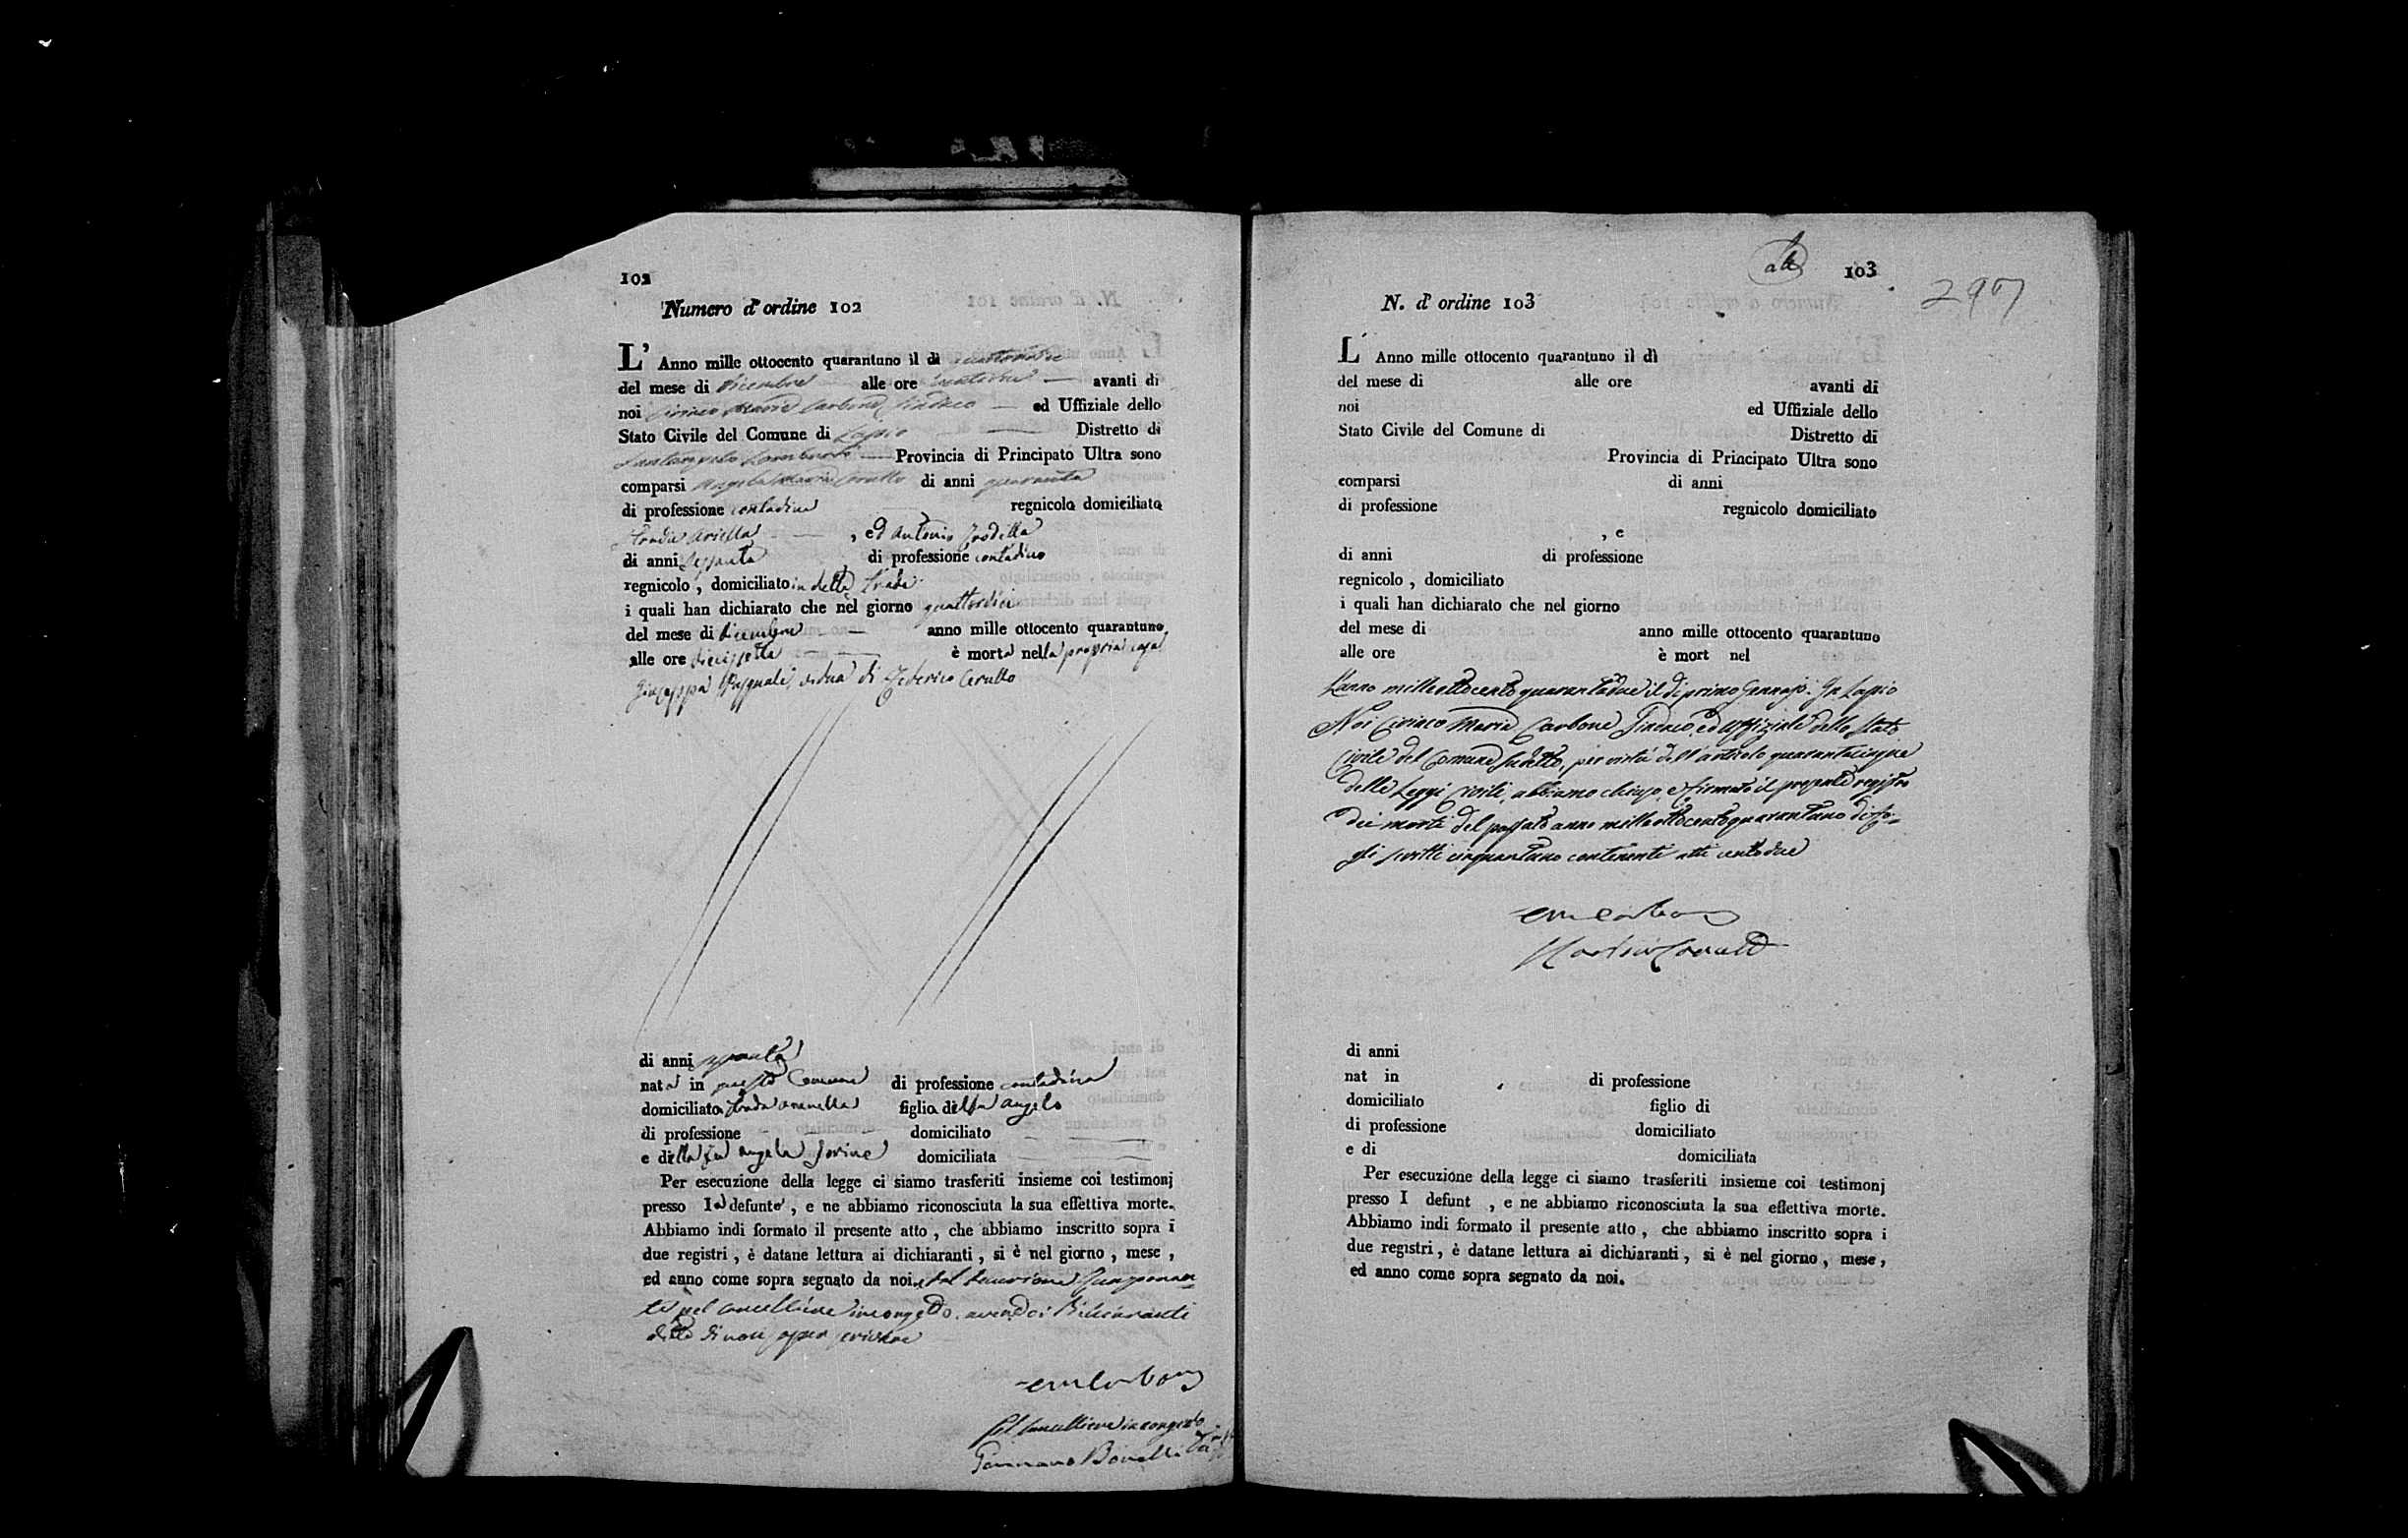 102
Numero d'ordine 102
L' Anno mille ottocento quarantuno il dì quattordici
del mese di Dicembre alle ore avanti di
noi Ciriaco Maria Carbone Sindaco ed Uffiziale dello
Stato Civile del Comune di Lapio Distretto di
Santangelo Lombardi Provincia di Principato Ultra sono
comparsi Angela Maria Cerullo di anni quaranta
di professione contadina regnicola domiciliata
Strada , ed Antonio
di anni di professione contadino
regnicolo , domiciliato in detta Strada
i quali han dichiarato che nel giorno quattordici
del mese di Dicembre anno mille ottocento quarantuno
alle ore è morta nella propria casa
Giuseppa Pasquale, vedua di Federico Cerullo
di anni
nata in questo Comune di professione contadina
domiciliata Strada figlia del fu Angelo
di professione domiciliato
e della fu Angela domiciliata
Per esecuzione della legge ci siamo trasferiti insieme coi testimonj
presso la defunta , e ne abbiamo riconosciuta la sua effettiva morte.
Abbiamo indi formato il presente atto , che abbiamo inscritto sopra i
due registri , è datane lettura ai dichiaranti , si è nel giorno , mese ,
ed anno come sopra segnato da noi, e dal Decurione funzionan
te pel Cancelliere in congedo, avendoci i Dichiaranti
detto di non saper scrivere
CM Carbone
Pel Cancelliere in congedo
Gennaro
103
2907
N. d' ordine 103
L' Anno mille ottocento quarantuno il dì
del mese di alle ore avanti di
noi ed Uffiziale dello
Stato Civile del Comune di Distretto di
Provincia di Principato Ultra sono
comparsi di anni
di professione regnicolo domiciliato
, e
di anni di professione
regnicolo , domiciliato
i quali han dichiarato che nel giorno
del mese di anno mille ottocento quarantuno
alle ore è mort nel
L'anno milleottocentoquarantadue il dì primo Gennajo. In Lapio
Noi Ciriaco Maria Carbone Sindaco, ed Uffiziale dello Stato
Civile del Comune sudetto, per virtù dell'articolo quarantacinque
delle Leggi Civili, abbiamo chiuso, e firmato il presente registro
dei morti del passato anno milleottocentoquarantuno di fo-
gli scritti cinquantuno contenenti atti centodue
CM Carbone
di anni
nat in di professione
domiciliato figlio di
di professione domiciliato
e di domiciliata
Per esecuzione della legge ci siamo trasferiti insieme coi testimonj
presso I defunt , e ne abbiamo riconosciuta la sua effettiva morte.
Abbiamo indi formato il presente atto , che abbiamo inscritto sopra i
due registri , è datane lettura ai dichiaranti , si è nel giorno , mese ,
ed anno come sopra segnato da noi.